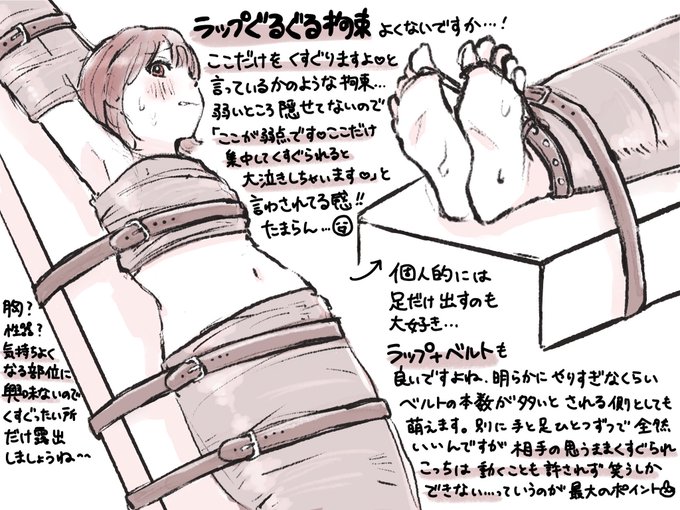 ラップぐるぐる拘束 よくないですか…!
ここだけをくすぐりますよ♡と
言っているかのような拘束…
弱いところ隠せてないので
「ここが弱点です♡ここだけ
集中してくすぐられると
大泣きしちゃいます♡」と
言わされてる感!!
たまらん…
個人的には
足だけ出すのも
大好き…
胸?
性器?
気持ちよく
なる部位に
興味ないので
くすぐったい所
だけ露出
しましょうね~~
ラップ+ベルトも
良いですよね、明らかにやりすぎなくらい
ベルトの本数が多いと される側としても
萌えます。別に手と足ひとつずつで全然
いいんですが 相手の思うままくすぐられ
こっちは動くことも許されず笑うしか
できない…っていうのが最大のポイント